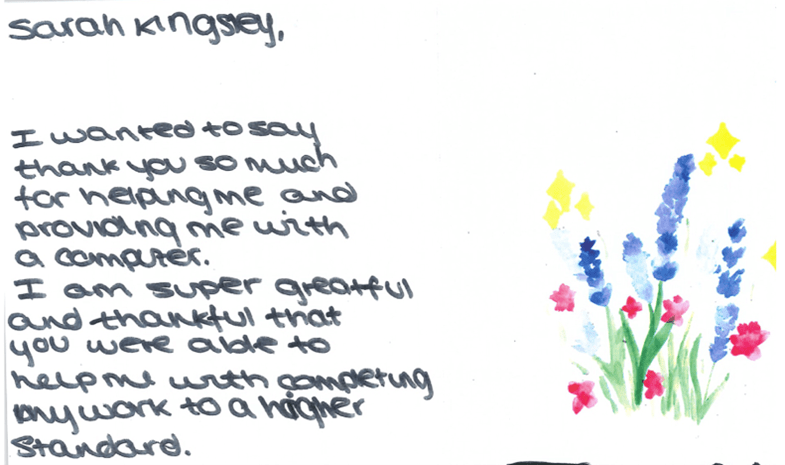 Sarah Kingsley,
I wanted to say
thank you so much
for helping me and
providing me with
a computer.
I am super greatful
and thankful that
you were able to
help me with completing
my work to a higher
Standard.